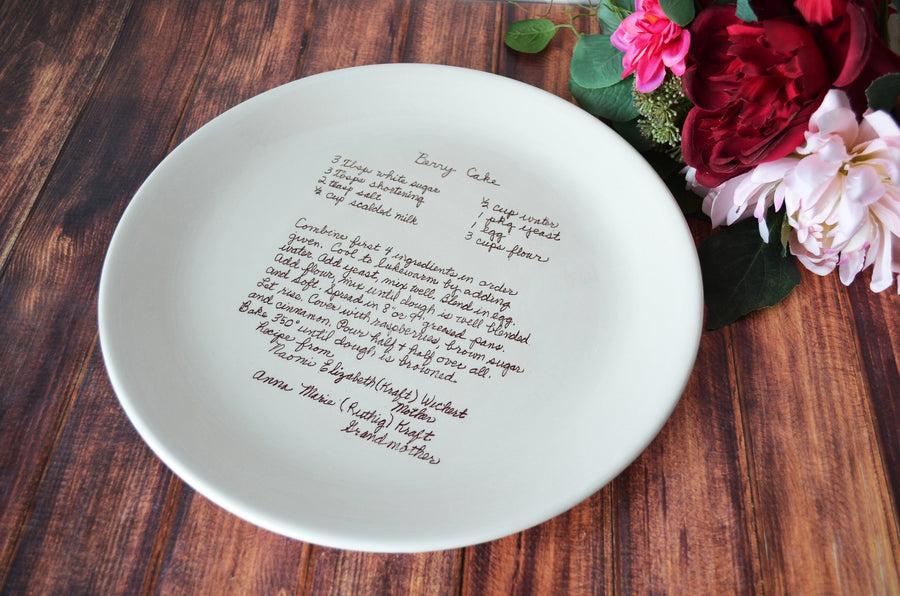 Berry Cake
3 Tbsp white sugar
3 Tbsps shortening
2 teasp salt
½ cup scalded milk
½ cup water
1 pkg yeast
1 egg
3 cups flour
Combine first 4 ingredients in order
given. Cool to lukewarm by adding
water. Add yeast, mix well. Blend in egg.
Add flour, mix until dough is well blended
and soft. Spread in 8" or 9" greased pans.
Let rise. Cover with raspberries, brown sugar
and cinnamon. Pour half + half over all.
Bake 350° until dough is browned.
Recipe from
Naomi Elizabeth (Kraft) Wichert
Mother
Anna Marie (Ruthig) Kraft
Grandmother